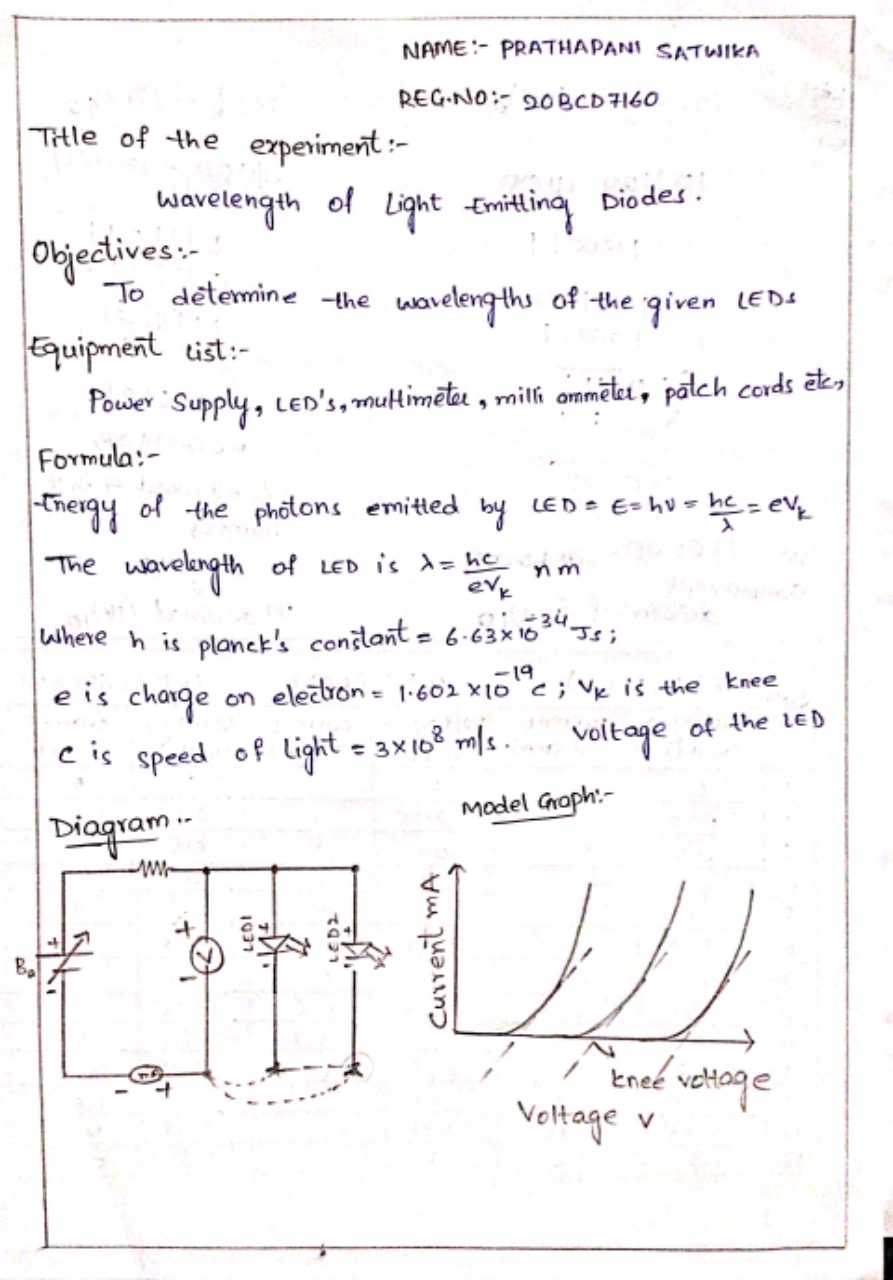 NAME:- PRATHAPANI SATWIKA
REG.NO:- 20BCD7160
Title of the experiment:-
Wavelength of Light Emitting Diodes.
Objectives:-
To determine the wavelengths of the given LEDs
Equipment List:-
Power Supply, LED's, multimeter, milli ammeter, patch cords etc.,
Formula:-
Energy of the photons emitted by LED = E = hν = hc/λ = eVk
The wavelength of LED is λ = hc/eVk nm
Where h is planck's constant = 6.63×10^-34 Js;
e is charge on electron = 1.602×10^-19 c; Vk is the knee
voltage of the LED
c is speed of light = 3×10^8 m/s.
Diagram:-
Model Graph:-
+ -
+ V -
LED1 + -
LED2 + -
- +
Current mA
knee voltage
Voltage V